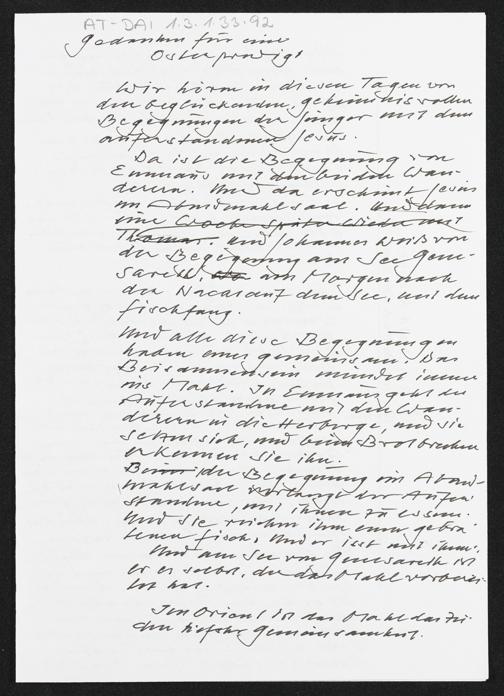 AT-DAI 1.3.1.33.92
Gedanken für eine
Osterpredigt
Wir hören in diesen Tagen von
den beglückenden, geheimnisvollen
Begegnungen der Jünger mit dem
auferstandenen Jesus.
Da ist die Begegnung von
Emmaus mit den beiden Wan-
derern. Und da erscheint Jesus
im Abendmahlsaal. Und dann
eine Woche später wieder mit
Thomas. Und Johannes weiß von
der Begegnung am See Gene-
sareth, am Morgen nach
der Nacht auf dem See, mit dem
Fischfang.
Und alle diese Begegnungen
haben eines gemeinsam: Das
Beisammensein mündet immer
ins Mahl. In Emmaus geht der
Auferstandene mit den Wan-
derern in die Herberge, und sie
setzen sich, und beim Brotbrechen
erkennen sie ihn.
Beim der Begegnung im Abend-
mahlsaal verlangt der Aufer-
standene, mit ihnen zu essen.
Und sie reichen ihm einen gebra-
tenen Fisch. Und er isst mit ihnen.
Und am See von Genesareth ist
er es selbst, der das Mahl vorberei-
tet hat.
Im Orient ist das Mahl das Zei-
chen tiefster Gemeinsamkeit.